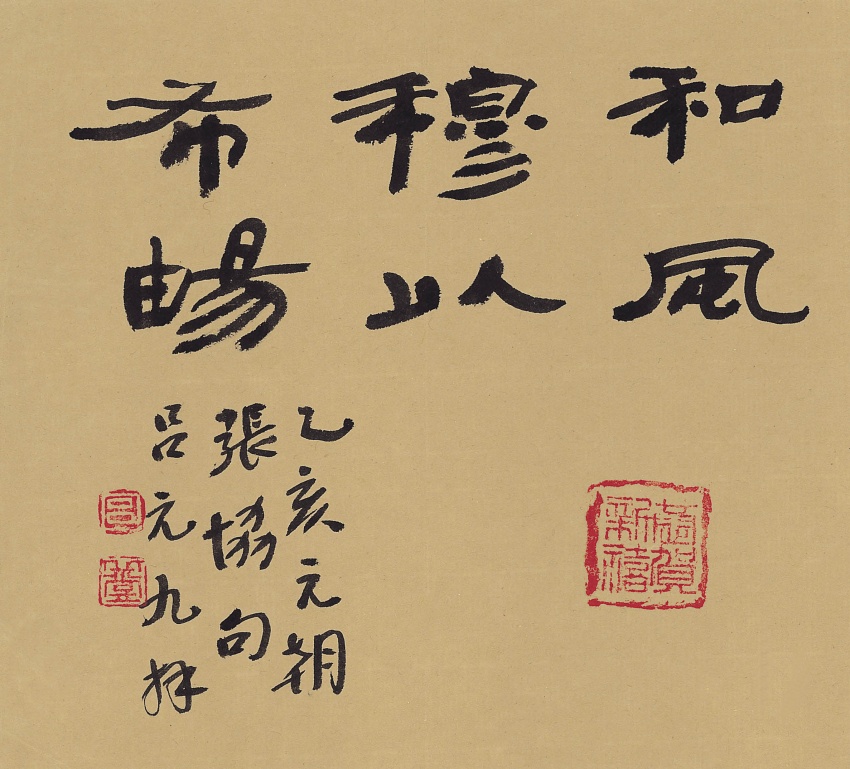 和風
穆以
希暢
乙亥元朔
張協句
呂元九拜
恭賀新禧